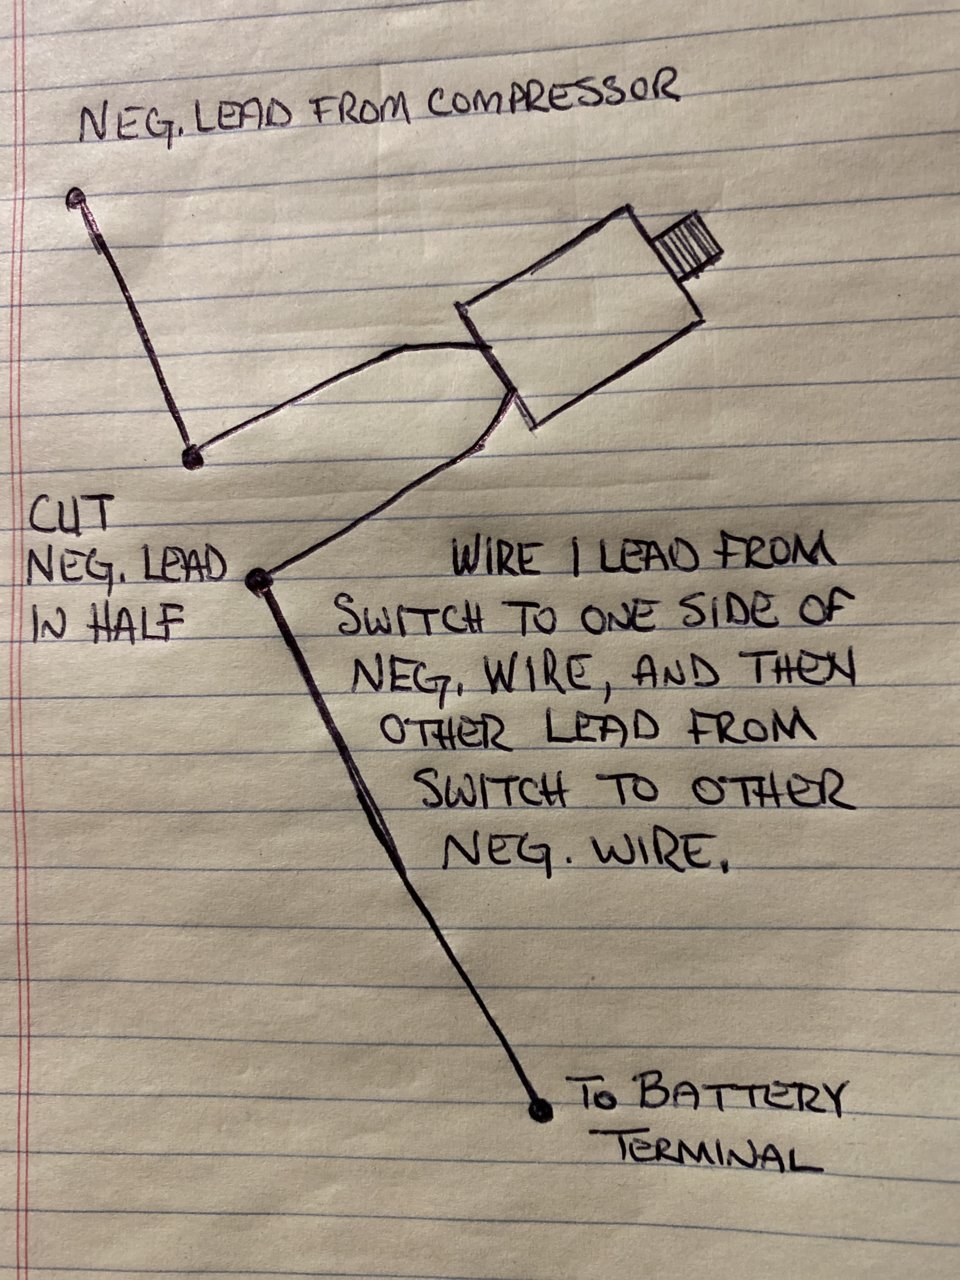 NEG. LEAD FROM COMPRESSOR
CUT
NEG. LEAD
IN HALF
WIRE 1 LEAD FROM
SWITCH TO ONE SIDE OF
NEG. WIRE, AND THEN
OTHER LEAD FROM
SWITCH TO OTHER
NEG. WIRE.
TO BATTERY
TERMINAL